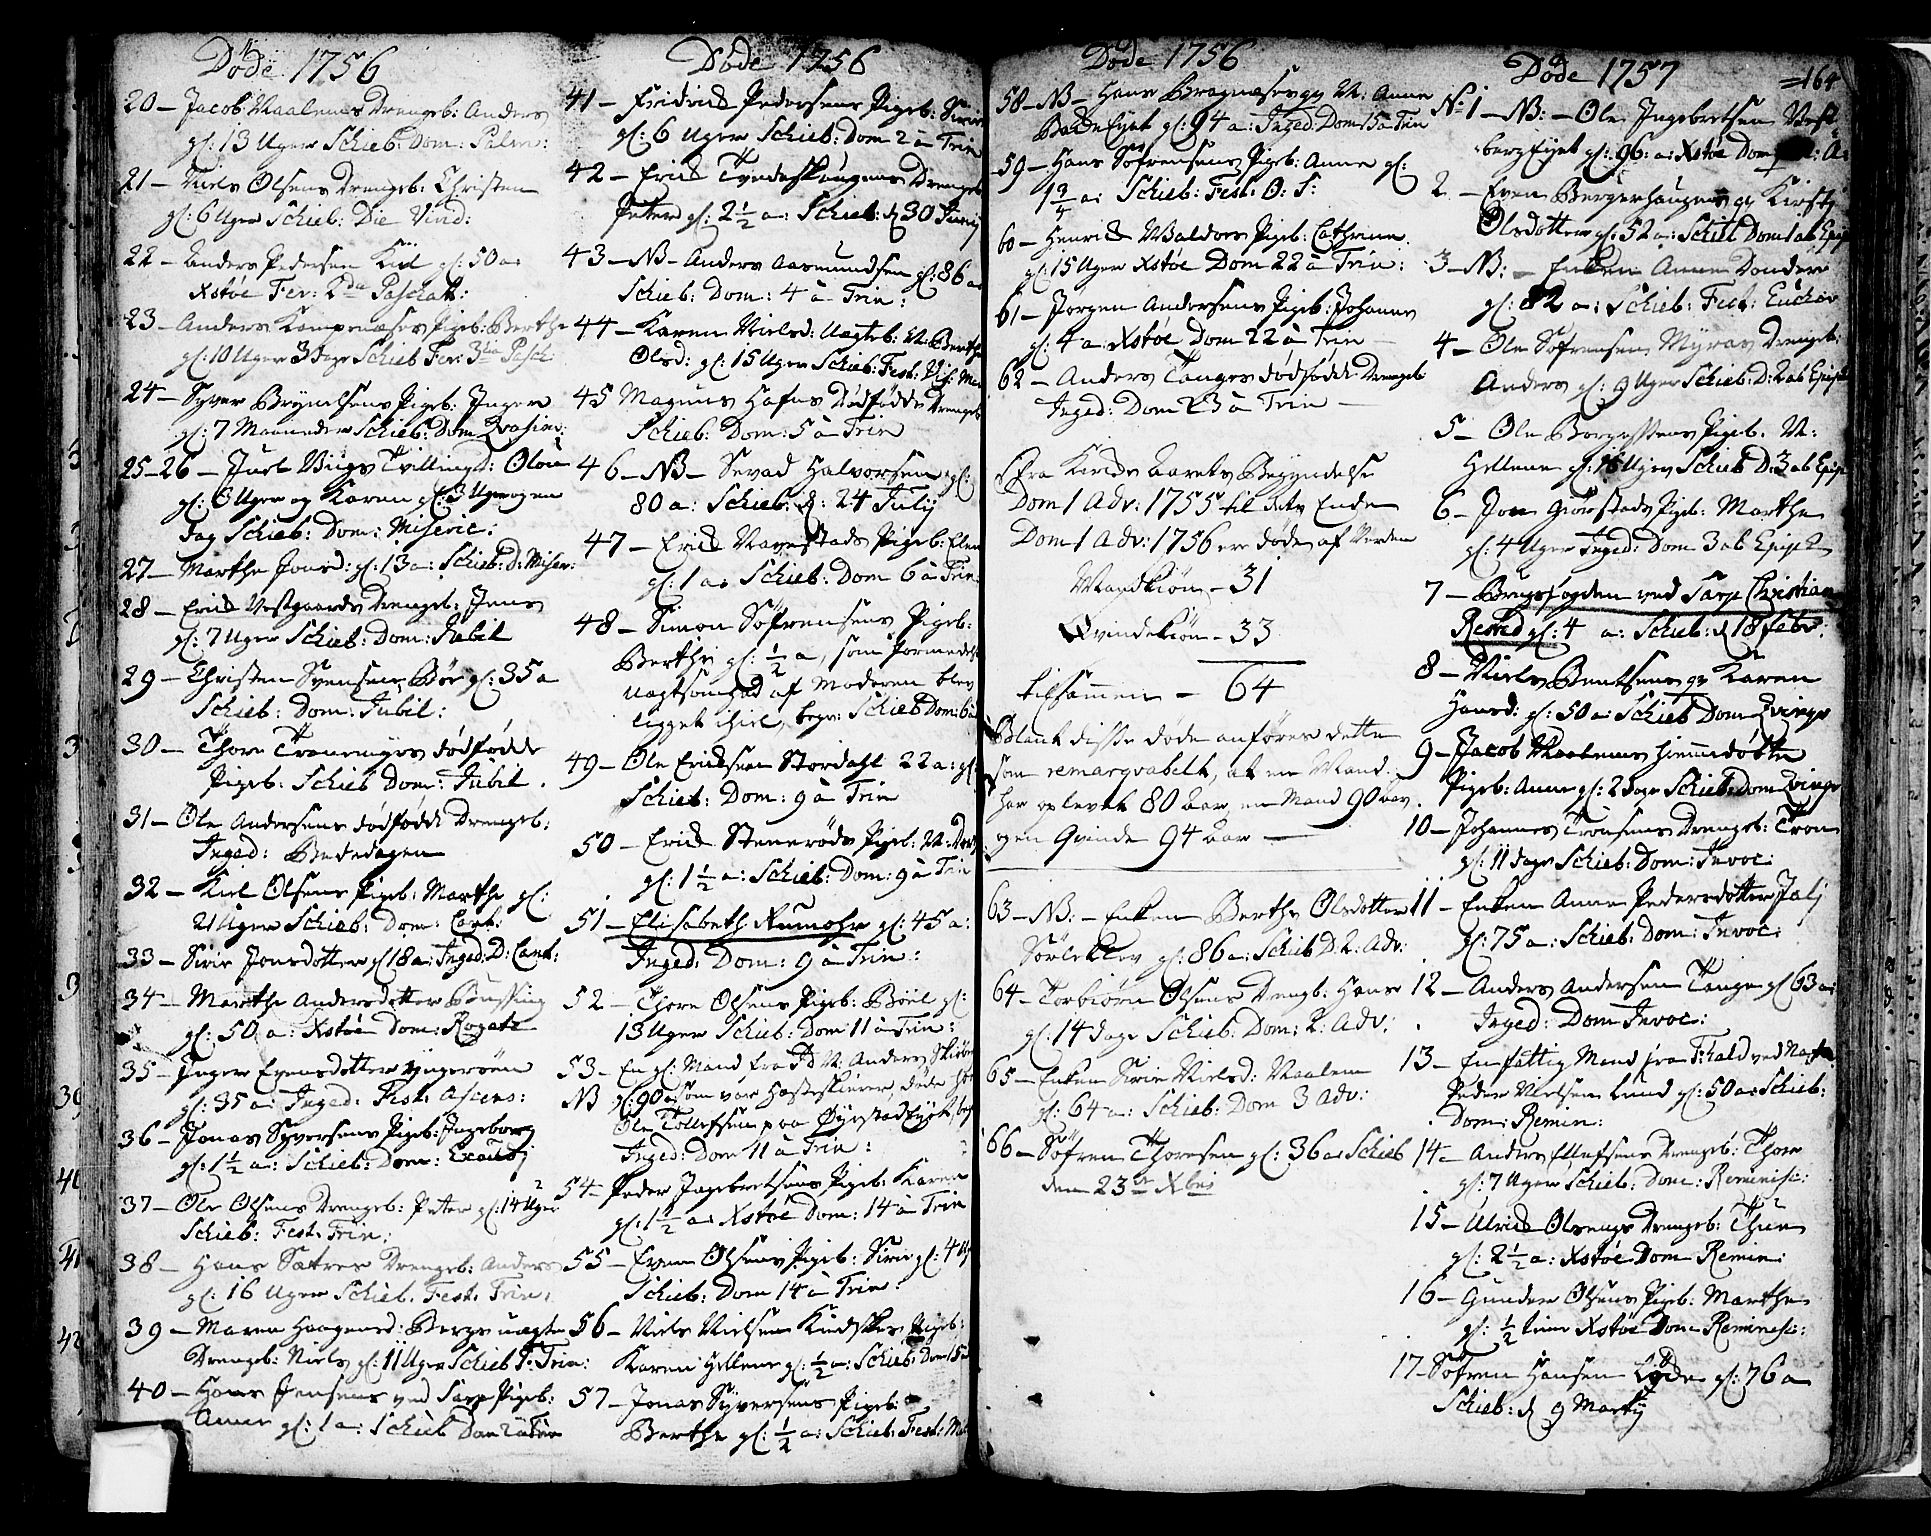 Døde 1756
20 – Jacob Maalenes Drengeb: Anders
gl: 13 Uger Schieb: Dom: Palm:
21 – Niels Olsens Drengeb: Christen
gl: 6 Uger Schieb: Die Virid:
22 – Anders Pedersen Kiil gl: 50 a:
Xstøe Fer: 2da Paschat:
23 – Anders Kampenæses Pigeb: Berthe
gl: 10 Uger 3 Dage Schieb Fer: 3tia Pasch
24 – Syver Brynelsens Pigeb: Ingere
gl: 7 Maaneder Schieb: Dom Qvasim:
25–26 – Juel Viigs Tvillingd: Oloů
gl: 3 Uger og Karen gl: 3 Uger ogen
dag Schieb: Dom: Miseric:
27 – Marthe Jonsd: gl: 13 a: Schieb: D: Miser:
28 – Erich Vestgaards Drengeb: Jens
gl: 7 Uger Schieb: Dom: Jubil
29 – Christen Svensen Bør gl: 35 a
Schieb: Dom: Jubil:
30 – Thore Tranemyrs dødfødde
Pigeb: Schieb Dom: Jubil.
31 – Ole Andersens dødfødde Drengeb:
Inged: Bededagen
32 – Kiel Olsens Pigeb: Marthe gl:
21 Uger Schieb: Dom: Cant:
33 – Sirie Jonsdotter gl 18 a: Inged: D: Cant:
34 – Marthe Andersdotter
gl: 50 a: Xstøe Dom: Rogate
35 – Inger Evensdotter Yngersøen
gl: 35 a: Inged: Fest: Ascens:
36 – Jonas Syversens Pigeb: Ingeborg
gl: 1 1/2 a: Schieb: Dom: Exaudj
37 – Ole Olsens Drengeb: Peter gl: 14 Uger
Schieb: Fest: Trin:
38 – Hans Sætres Drengeb: Anders
gl: 16 Uger Schieb: Fest: Trin:
39 – Maren Haagensd: Bergs uægte
Drengeb: Niels gl: 11 Uger Schieb F: Trin:
40 – Hans Jensens ved Sarp Pigeb:
Anne gl: 1 a: Schieb Dom 2 a Trin
Døde 1756
41 – Fridrich Pedersens Pigeb: Sirie
gl: 6 Uger Schieb: Dom 2 a Trin
42 – Erich Tvedeskougens Drengeb
Peter gl: 2 1/2 a: Schieb: d 30 Junij
43 – NB – Anders Aasmundsen gl: 86 a
Schieb: Dom: 4 a Trin:
44 – Karen Nielsd: Uægteb: N: Berthe
Olsd: gl: 15 Uger Schieb: Fest: Vis: Mar
45 Magnus Hafns Dødfødde Drengeb
Schieb: Dom: 5 a Trin
46 – NB – Sevad Halvorsen gl:
80 a: Schieb: d: 24 Julij
47 – Erich Navestads Pigeb: Elen
gl: 1 a: Schieb: Dom 6 a Trin:
48 – Simon Søfrensens Pigeb:
Berthe gl: 1/2 a, som formedelst
uagtsomhed af Moderen blev
ligget ihiel, begr: Schieb Dom: 6 a
49 – Ole Erichsen Stordahl 22 a: gl
Schieb: Dom: 9 a Trin
50 – Erich Stenerøds Pigeb: N:
gl: 1 1/2 a: Schieb: Dom: 9 a Trin
51 – Elisabeth Rumohr gl: 45 a:
Inged: Dom: 9 a Trin:
52 – Thore Olsens Pigeb: Boel gl:
13 Uger Schieb: Dom 11 a Trin:
53 – En gl: Mand fra N: Anders
NB gl: 90 a som var Hesteskierer, døde hos
Ole Tollefsen paa
Inged: Dom 11 a Trin:
54 – Peder Ingebretsens Pigeb: Karen
gl: 1 1/2 a: Xstøe Dom: 14 a Trin
55 – Even Olsens Pigeb: Sirie gl: 4 Ug
Schieb: Dom 14 a Trin:
56 – Niels Nielsen Pigeb:
Karen Hellene gl: 1/2 a: Schieb: Dom 15 a
57 – Jonas Syversens Pigeb:
Berthe gl: 1/2 a: Schieb: Fest: Mic
Døde 1756
58 – NB – Hans Bragnæses qv N: Anne
gl: 94 a: Inged: Dom 15 a Trin
59 – Hans Søfrensens Pigeb: Anne gl:
1 3/4 a: Schieb: Fest: O: S:
60 – Henrich Waldors Pigeb: Cathrine
gl: 15 Uger Xstøe Dom 22 a Trin:
61 – Jørgen Andersens Pigeb: Johanne
gl: 4 a: Xstøe Dom 22 a Trin
62 – Anders Tanges dødfødde Drengeb
Inged: Dom 23 a Trin –
Fra Kirke Aarets Begyndelse
Dom 1 Adv: 1755 til dets Ende
Dom 1 Adv: 1756 ere døde af Verden
Mandkiøn – 31
Qvindekiøn – 33
tilsammen – 64
Blant disse døde anføres dette
som remarqvabelt, at en Mand
har oplevet 80 Aar, en Mand 90 Aar
ogen Qvinde 94 Aar –
63 – NB: – Enken Berthe Olsdotter
Sørlekløv gl: 86 a: Schieb D 2: Adv:
64 – Torbiørn Olsens Drengb: Hans
gl: 14 dage Schieb: Dom: 2: Adv:
65 – Enken Sirie Nielsd: Maalem
gl: 64 a: Schieb: Dom 3 Adv:
66 – Søfren Thoresen gl: 36 a Schieb
den 23de Xbris
Døde 1757
164
No 1 – NB: – Ole Ingebretsen Vest-
berg Eyet gl: 96: a: Xstøe Dom
2 – Even Bergerhaugens qv Kirsti
Olsdotter gl: 52 a: Schieb Dom 1 ab Epip
3 – NB: – Enken Anne Donder
gl: 82 a: Schieb: Fest: Euchar
4 – Ole Søfrensen Myras Drengeb:
Anders gl: 9 Uger Schieb: D: 2 ab Epiph
5 – Ole Borgestens Pigeb. N:
Hellene gl: 16 Uger Schieb D: 3 ab Epiph
6 – Jon Giørstads Pigeb: Marthe
gl: 4 Uger Inged: Dom 3 ab Epiph
7 – Brugsfogden ved Sarp Christian
Rested gl: 4 a: Schieb: d 18 Febr.
8 – Niels Bentsens qv Karen
Hansd: gl: 50 a: Schieb Dom Qvinqv
9 – Jacob Maalenes hiemmedøbte
Pigeb: Anne gl: 2 dage Schieb: Dom Qvinqv
10 – Johannes Tronsens Drengeb: Tron
gl: 11 dage Schieb: Dom: Invoc:
11 – Enken Anne Pedersdotter
gl: 75 a: Schieb: Dom: Invoc:
12 – Anders Andersen Tange gl 63 a:
Inged: Dom Invoc:
13 – En fattig Mand fra F:hald ved Nafn
Peder Nielsen Lund gl: 50 a: Schieb:
Dom: Remin:
14 – Anders Ellefsens Drengeb: Thore
gl: 7 Uger Schieb: Dom: Reminisc:
15 – Ulrich Olsengs Drengeb: Thue
gl: 2 1/2 a: Xstøe Dom Remin:
16 – Gunder Olsens Pigeb: Marthe
gl: 1/2 time Xstøe Dom Reminisc:
17 – Søfren Hansen Løde gl: 76 a
Schieb: d 9 Martij